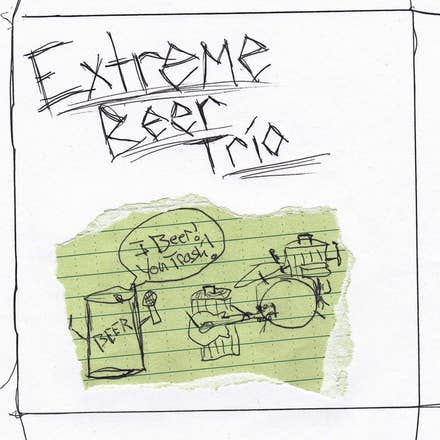 Extreme
Beer
Trio
I Beer!
You Trash!
BEER